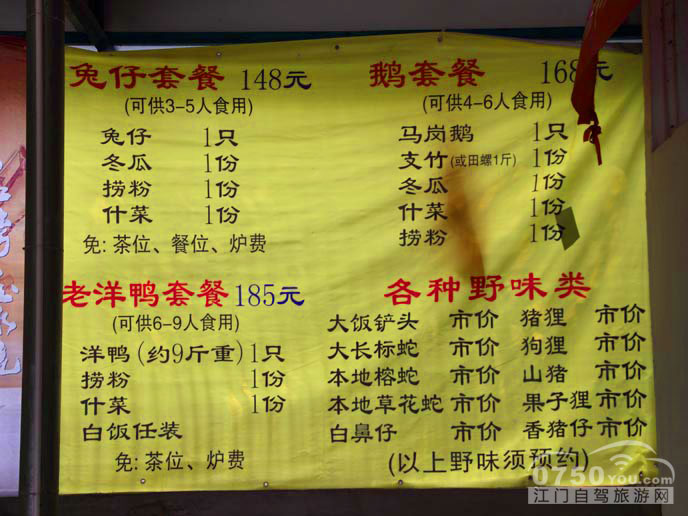 兔仔套餐 148元
(可供3-5人食用)
兔仔 1只
冬瓜 1份
捞粉 1份
什菜 1份
免:茶位、餐位、炉费
鹅套餐 168元
(可供4-6人食用)
马岗鹅 1只
支竹(或田螺1斤) 1份
冬瓜 1份
什菜 1份
捞粉 1份
老洋鸭套餐 185元
(可供6-9人食用)
洋鸭(约9斤重) 1只
捞粉 1份
什菜 1份
白饭任装
免:茶位、炉费
各种野味类
大饭铲头 市价 猪狸 市价
大长标蛇 市价 狗狸 市价
本地榕蛇 市价 山猪 市价
本地草花蛇 市价 果子狸 市价
白鼻仔 市价 香猪仔 市价
(以上野味须预约)
0750you.com
江门自驾旅游网